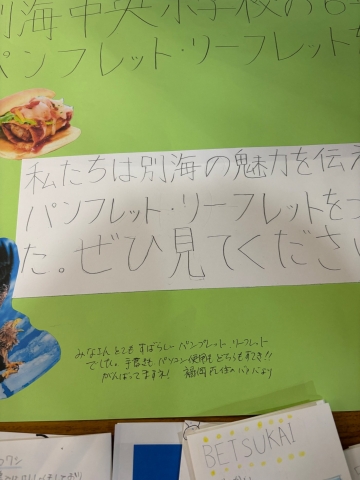 別海中央小学校の6
パンフレット・リーフレットを
私たちは別海の魅力を伝え
パンフレット・リーフレットを
た。ぜひ見てくださ
みなさん とても すばらしー パンフレット・リーフレット
でした。手書きも パソコン使用も どちらもすてき!!
がんばってますネ!
BETSUKAI